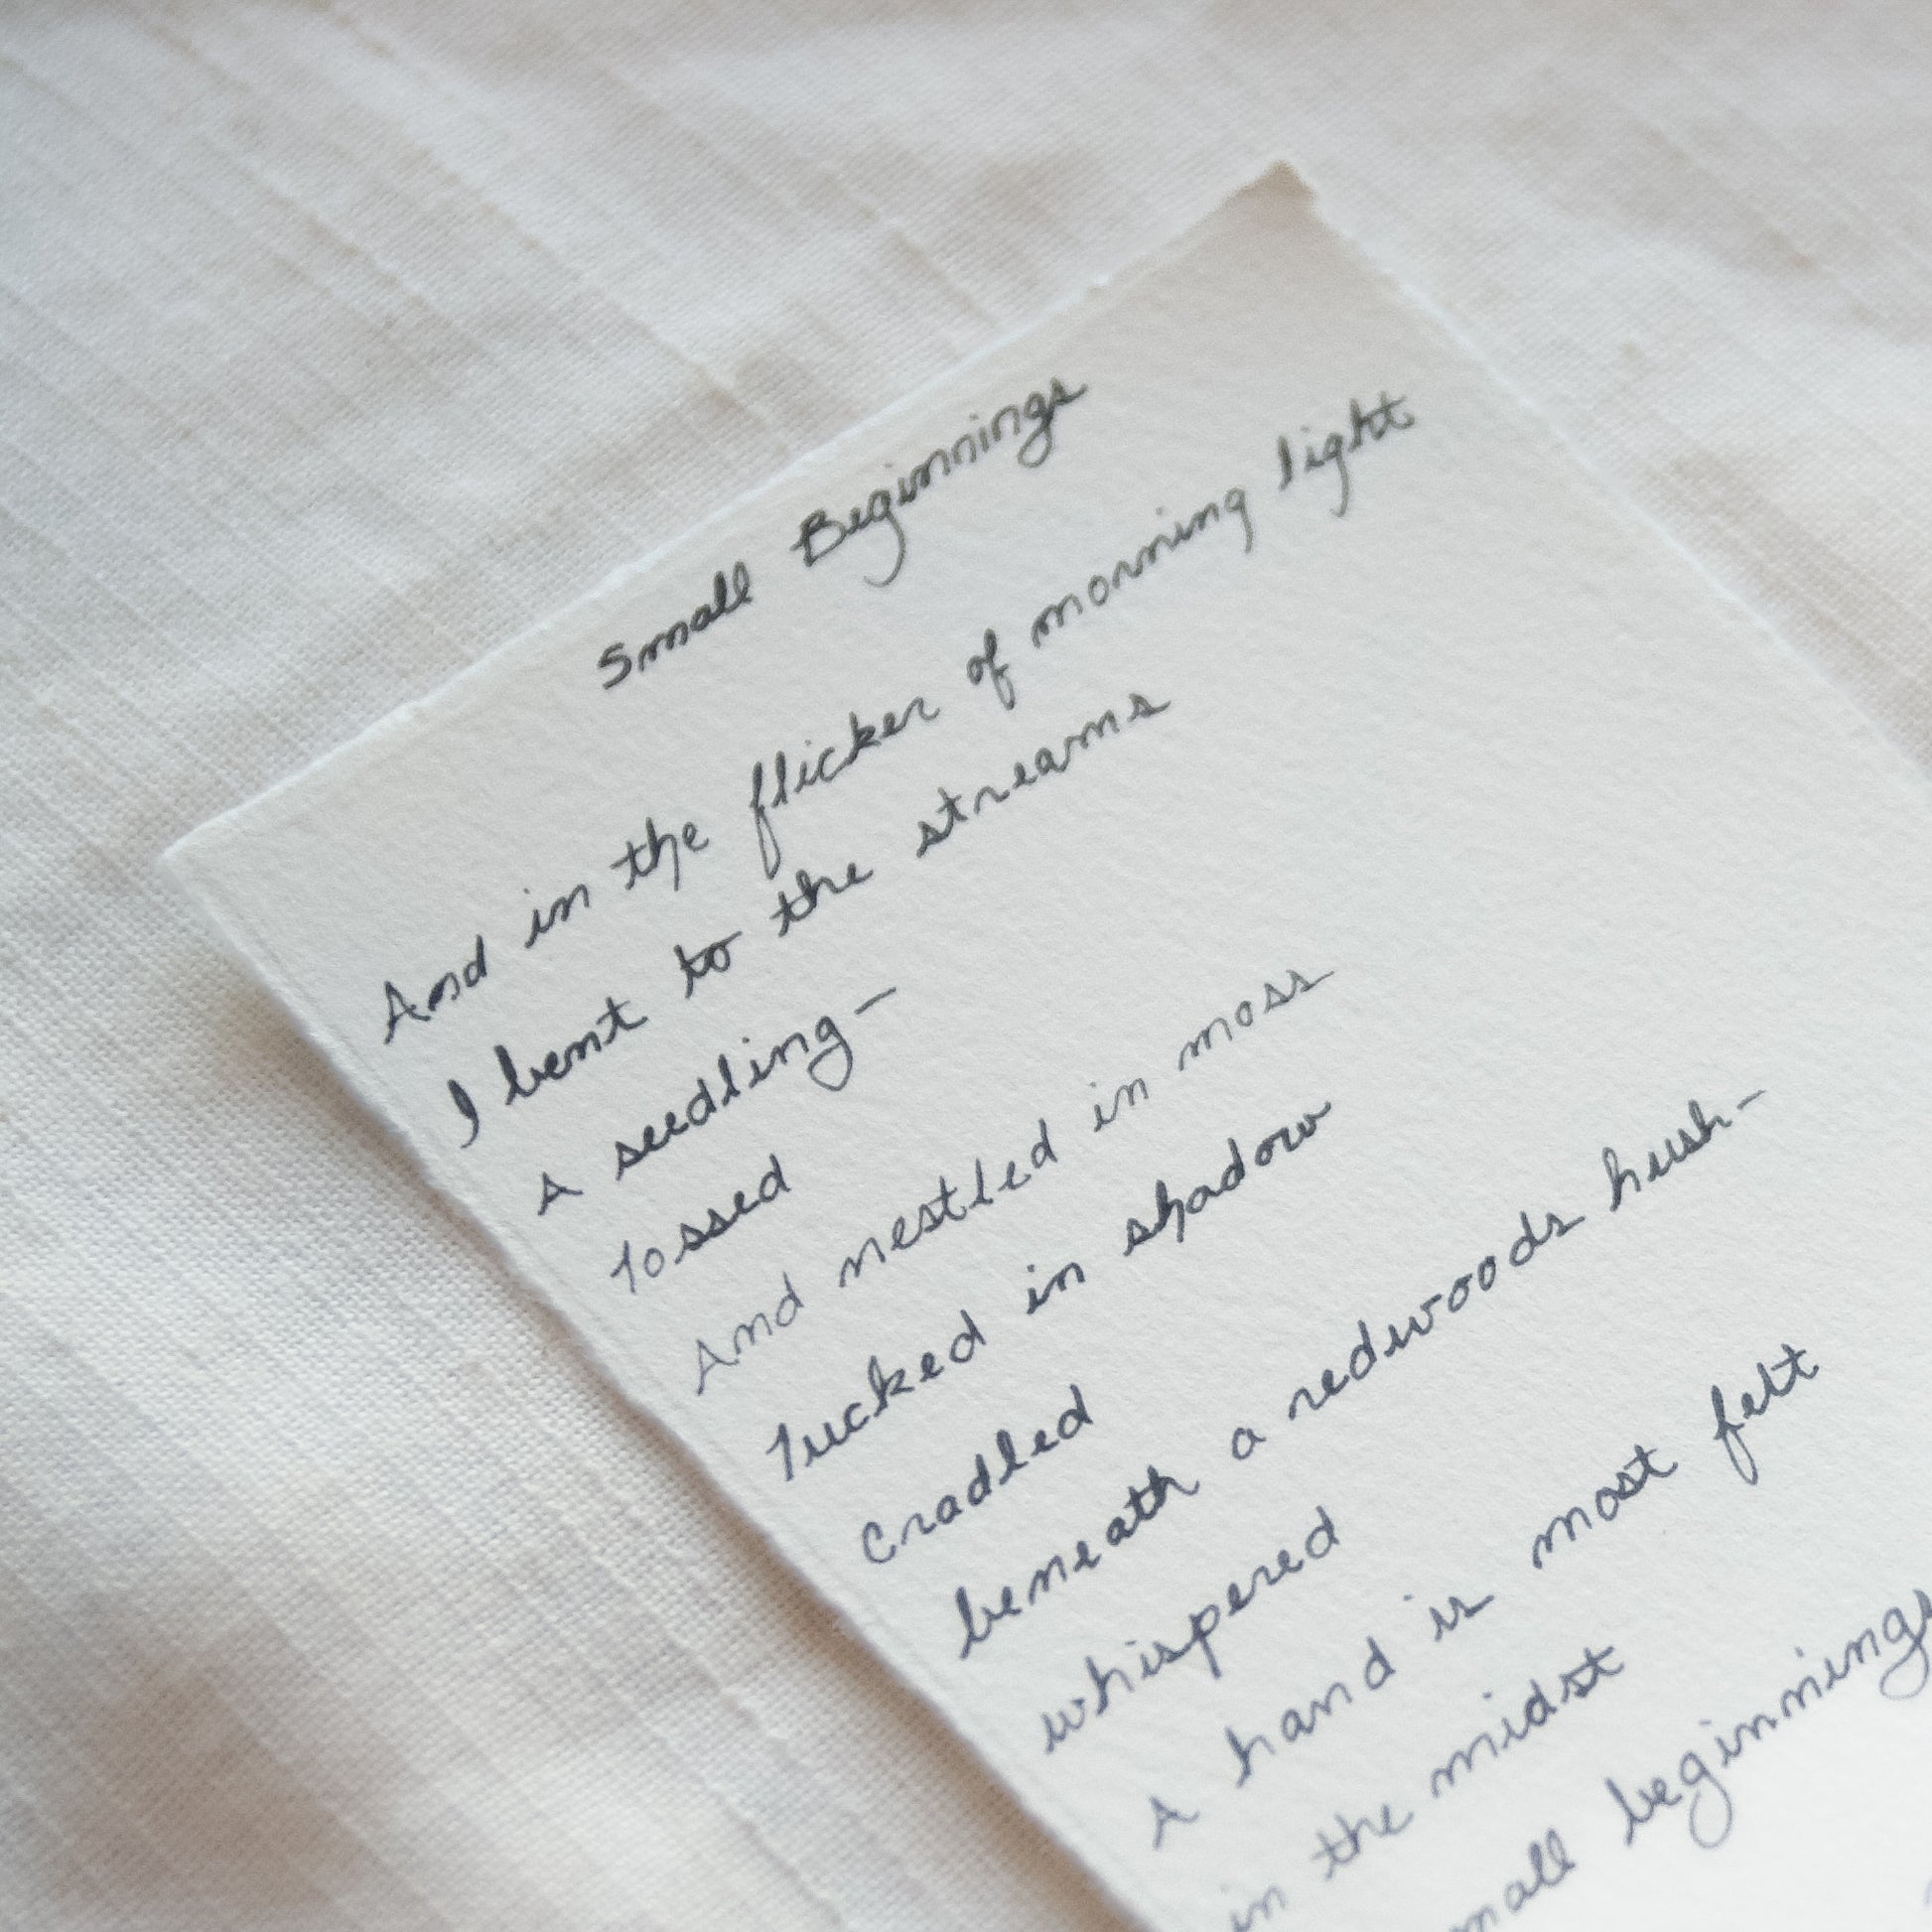 Small Beginnings
And in the flicker of morning light
I bent to the streams
A seedling—
Tossed
And nestled in moss
Tucked in shadow
Cradled
beneath a redwoods hush—
whispered
A hand is most felt
in the midst
beginnings